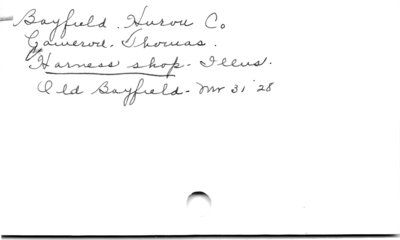 Bayfield. Huron Co
Gamerod. Thomas.
Harness shop - Illus.
Old Bayfield - Mr 31 '28